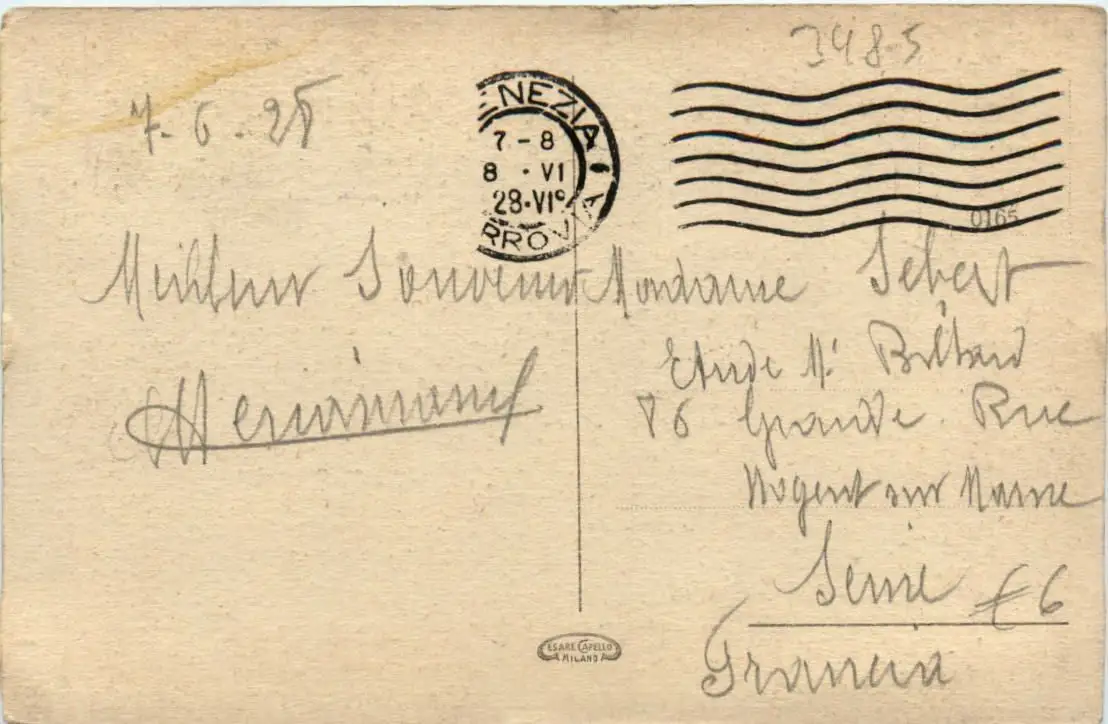 3485
7-6-28
ENEZIA
7-8
8 · VI
28·VIº
RROVIA
0165
Meilleur Souvenir
Madame Sebert
Etude Mr
86 Grande Rue
Nogent sur Marne
Seine
€6
Francia
ESARE CAPELLO
MILANO